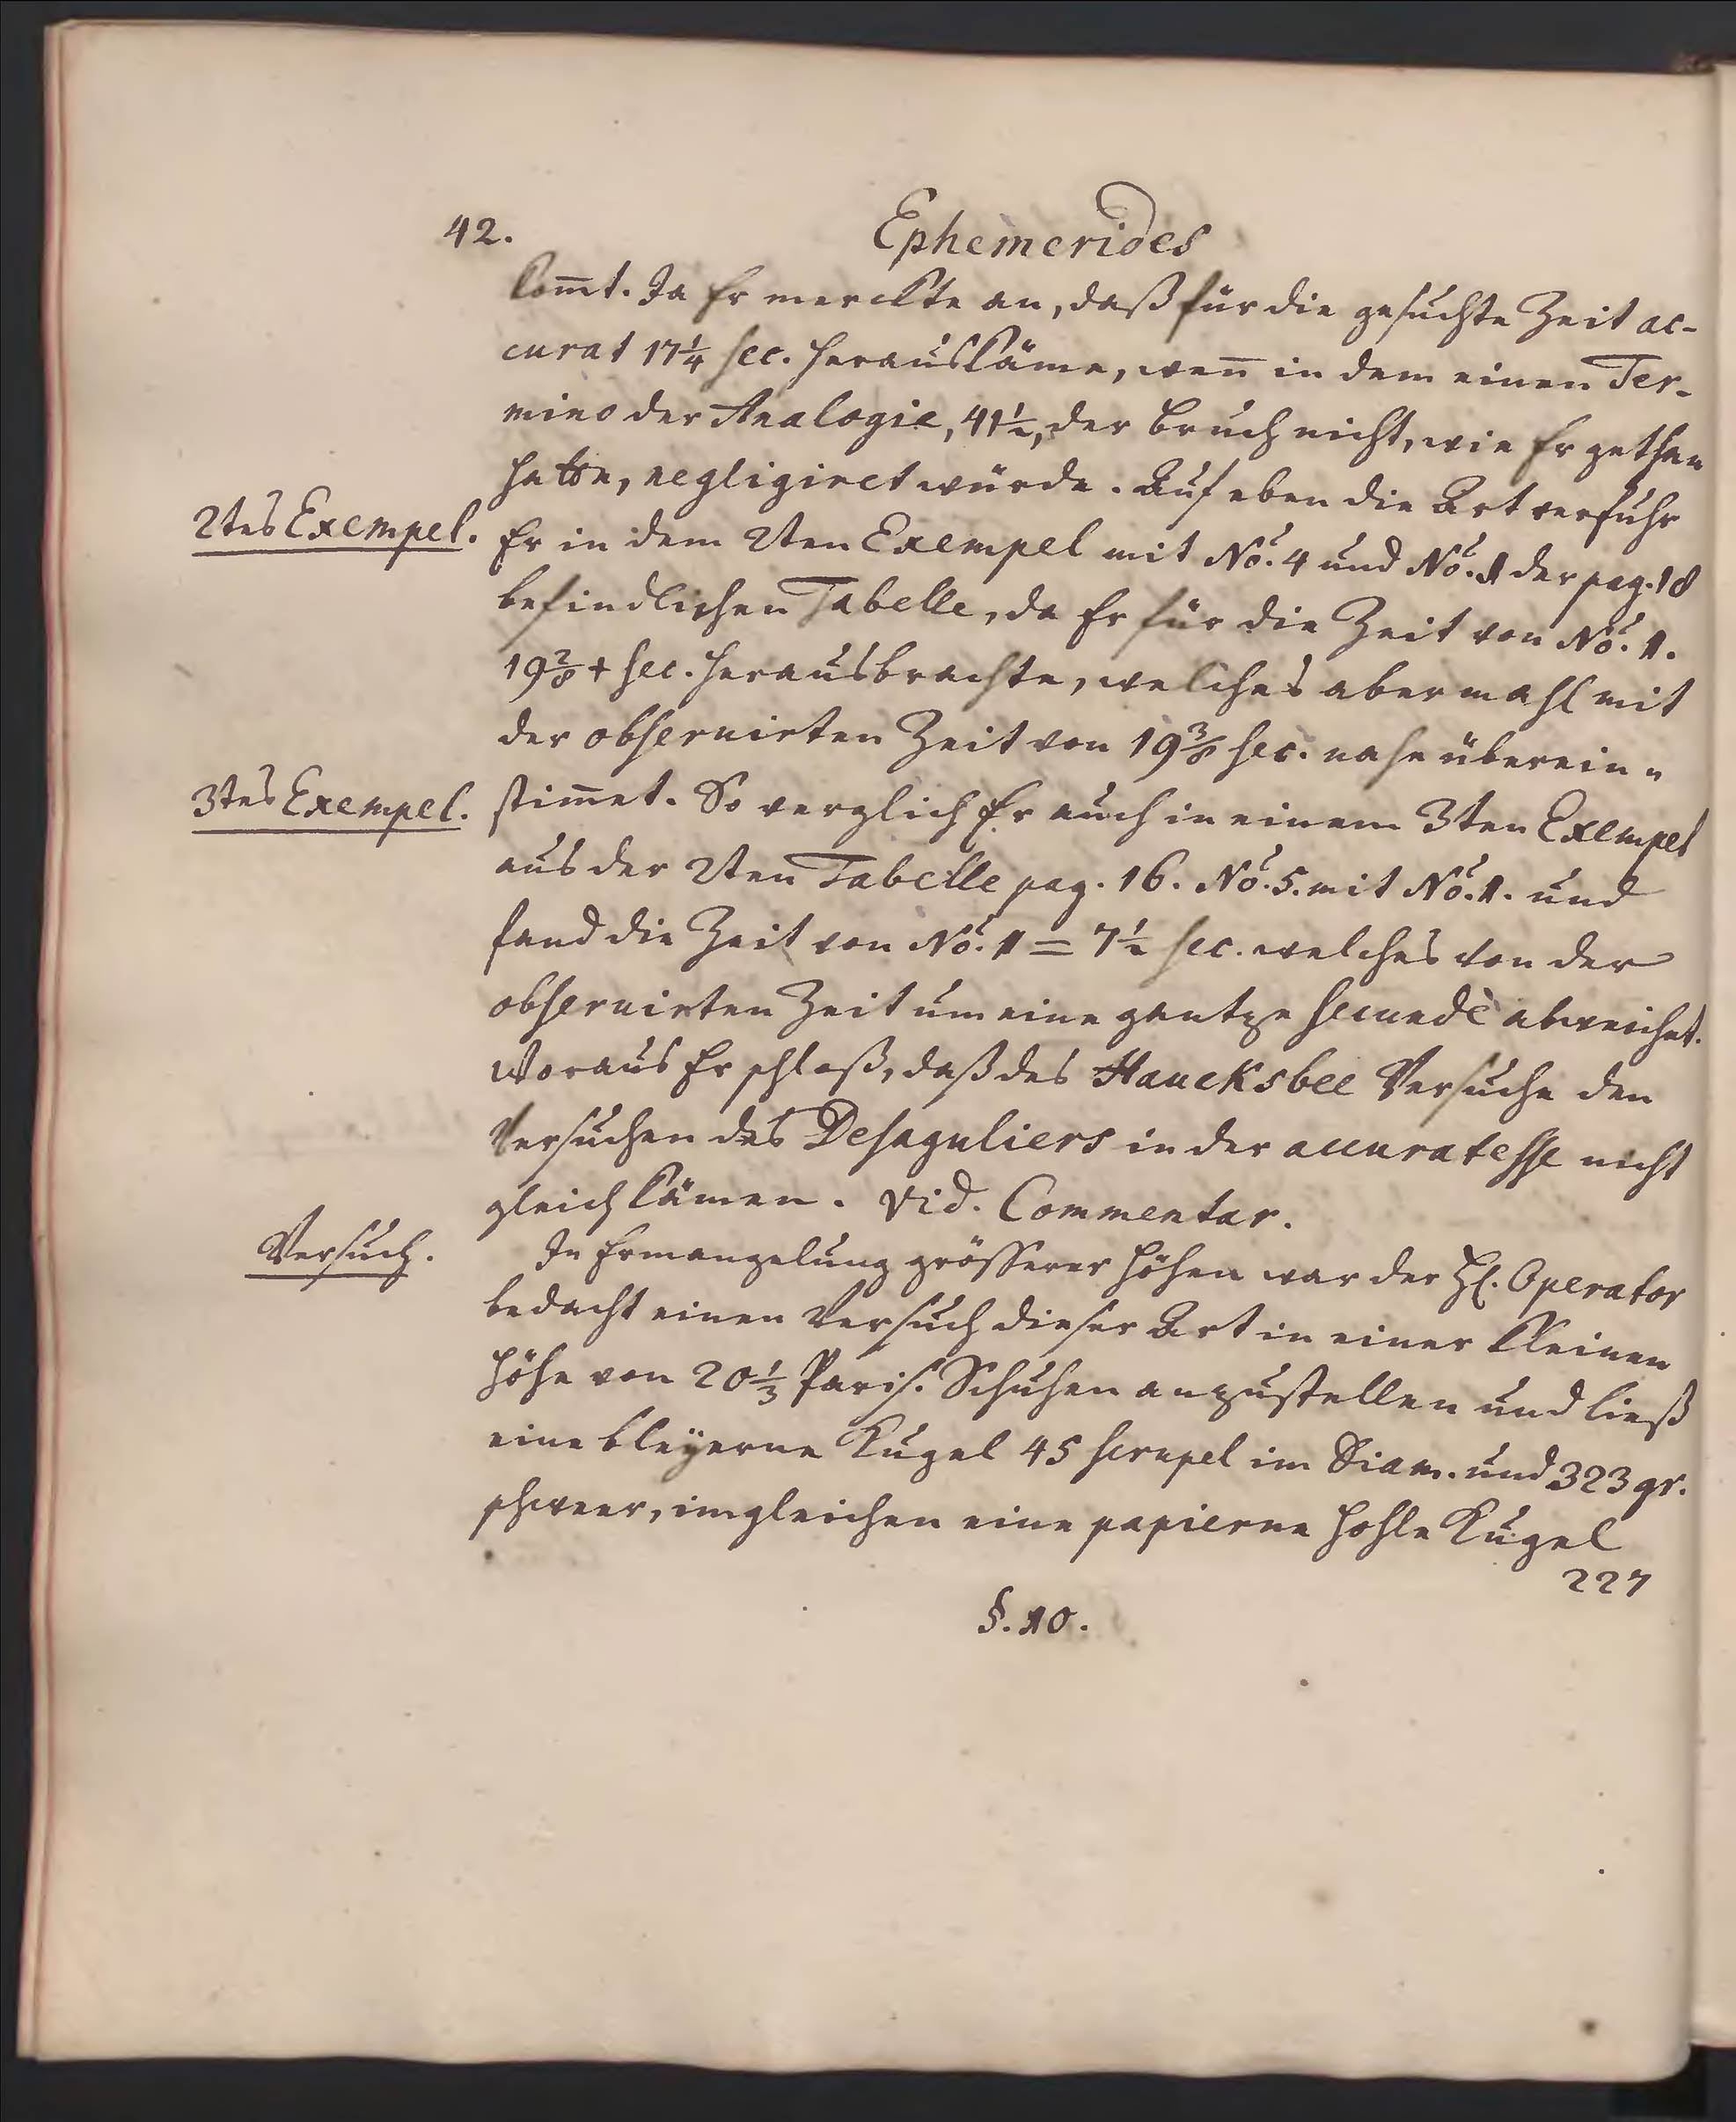 42.
Ephemerides
kom̄t. Ja Er merckte an, daß für die gesuchte Zeit ac-
curat 17¼ sec. herauskäme, wen̄ in dem einen Ter-
mino der Analogie, 41½, der Bruch nicht, wie Er gethan
hatte, negligiret würde. Auf eben die Art verfuhr
2tes Exempel.
Er in dem 2ten Exempel mit No. 4 und No. 1 der pag. 18
befindlichen Tabelle, da Er für die Zeit von No. 1.
19⅔ + sec. herausbrachte, welches abermahl mit
der observirten Zeit von 19⅜ sec. nahe überein„
3tes Exempel.
stim̄et. So verglich Er auch in einem 3ten Exempel
aus der 2ten Tabelle pag. 16. No. 5. mit No. 1. und
fand die Zeit von No. 1 = 7½ sec. welches von der
observirten Zeit um eine gantze secunde abweichet.
Woraus Er schloß, daß des Haucksbee Versuche den
Versuchen des Desaguliers in der accuratesse nicht
gleich kämen. Vid. Commentar.
Versuch.
In Ermangelung grösserer Höhen war der H. Operator
bedacht einen Versuch dieser Art in einer kleinen
Höhe von 20⅓ Paris. Schuhen anzustellen und ließ
eine bleÿerne Kugel 45 scrupel im Diam. und 323 gr.
schweer, imgleichen eine papierne hohle Kugel
227
§. 10.